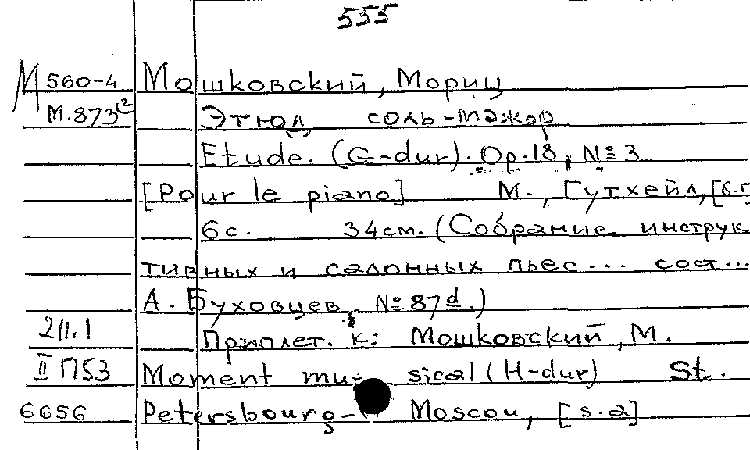 555
М 560-4 Мошковский, Мориц
М.873 Этюд соль-мажор
Etude. (G-dur). Op.18, № 3
[Pour le piano] М., Гутхейл, [б.г
6 с. 34 см. (Собрание инструк
тивных и салонных пьес... сост...
А. Буховцев, № 87d.)
2/1.1 Приплет. к: Мошковский, М.
II П53 Moment musical (H-dur) St.
6656 Petersbourg- Moscou, [s.a]